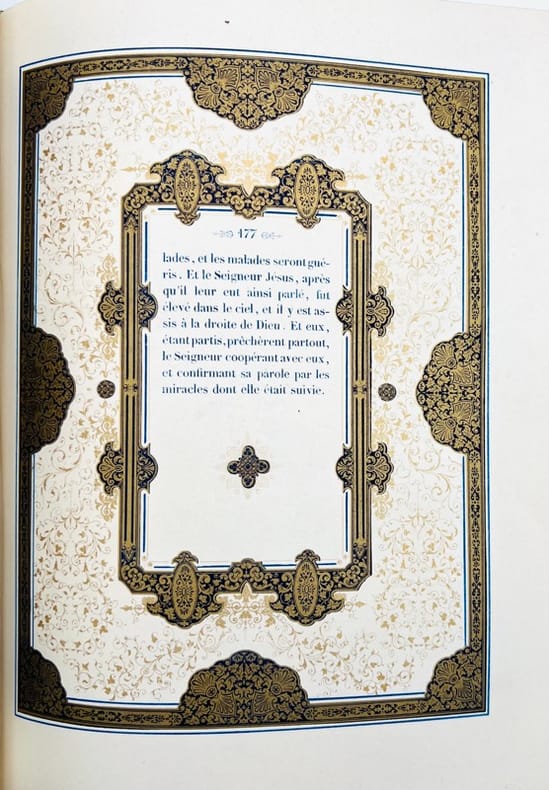 177
lades, et les malades seront gué-
ris. Et le Seigneur Jésus, après
qu'il leur eut ainsi parlé, fut
élevé dans le ciel, et il y est as-
sis à la droite de Dieu. Et eux,
étant partis, prêchèrent partout,
le Seigneur coopérant avec eux,
et confirmant sa parole par les
miracles dont elle était suivie.